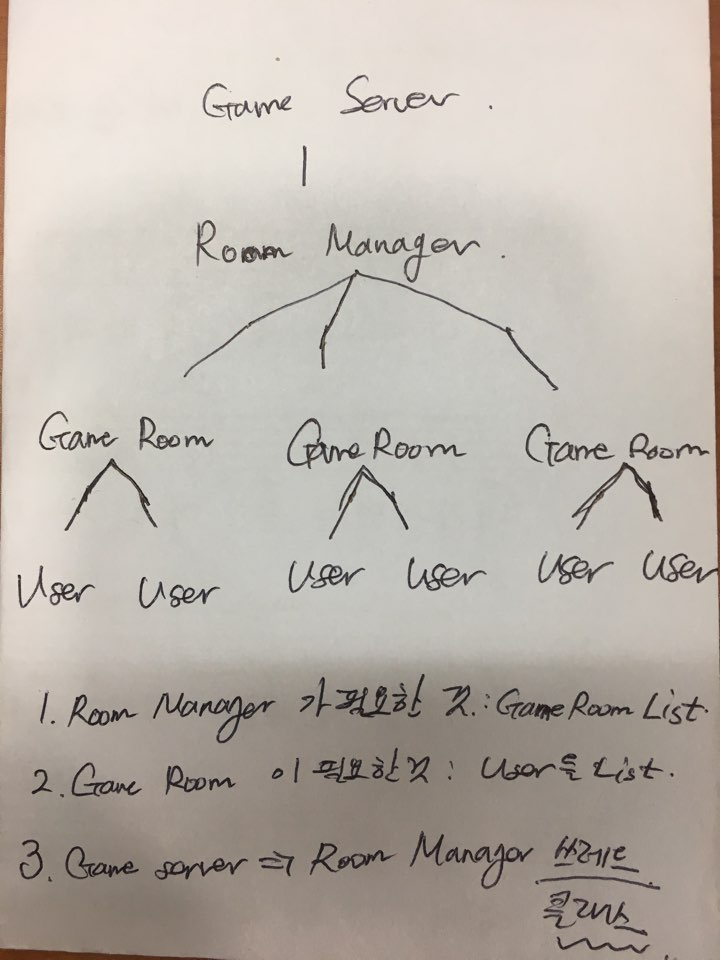 Game Server.
Room Manager.
Game Room Game Room Game Room
User User User User User User
1. Room Manager 가 필요한 것.: GameRoom List.
2. Game Room 이 필요한것: User들 List.
3. Game server ⇒ Room Manager 쓰레드
클래스